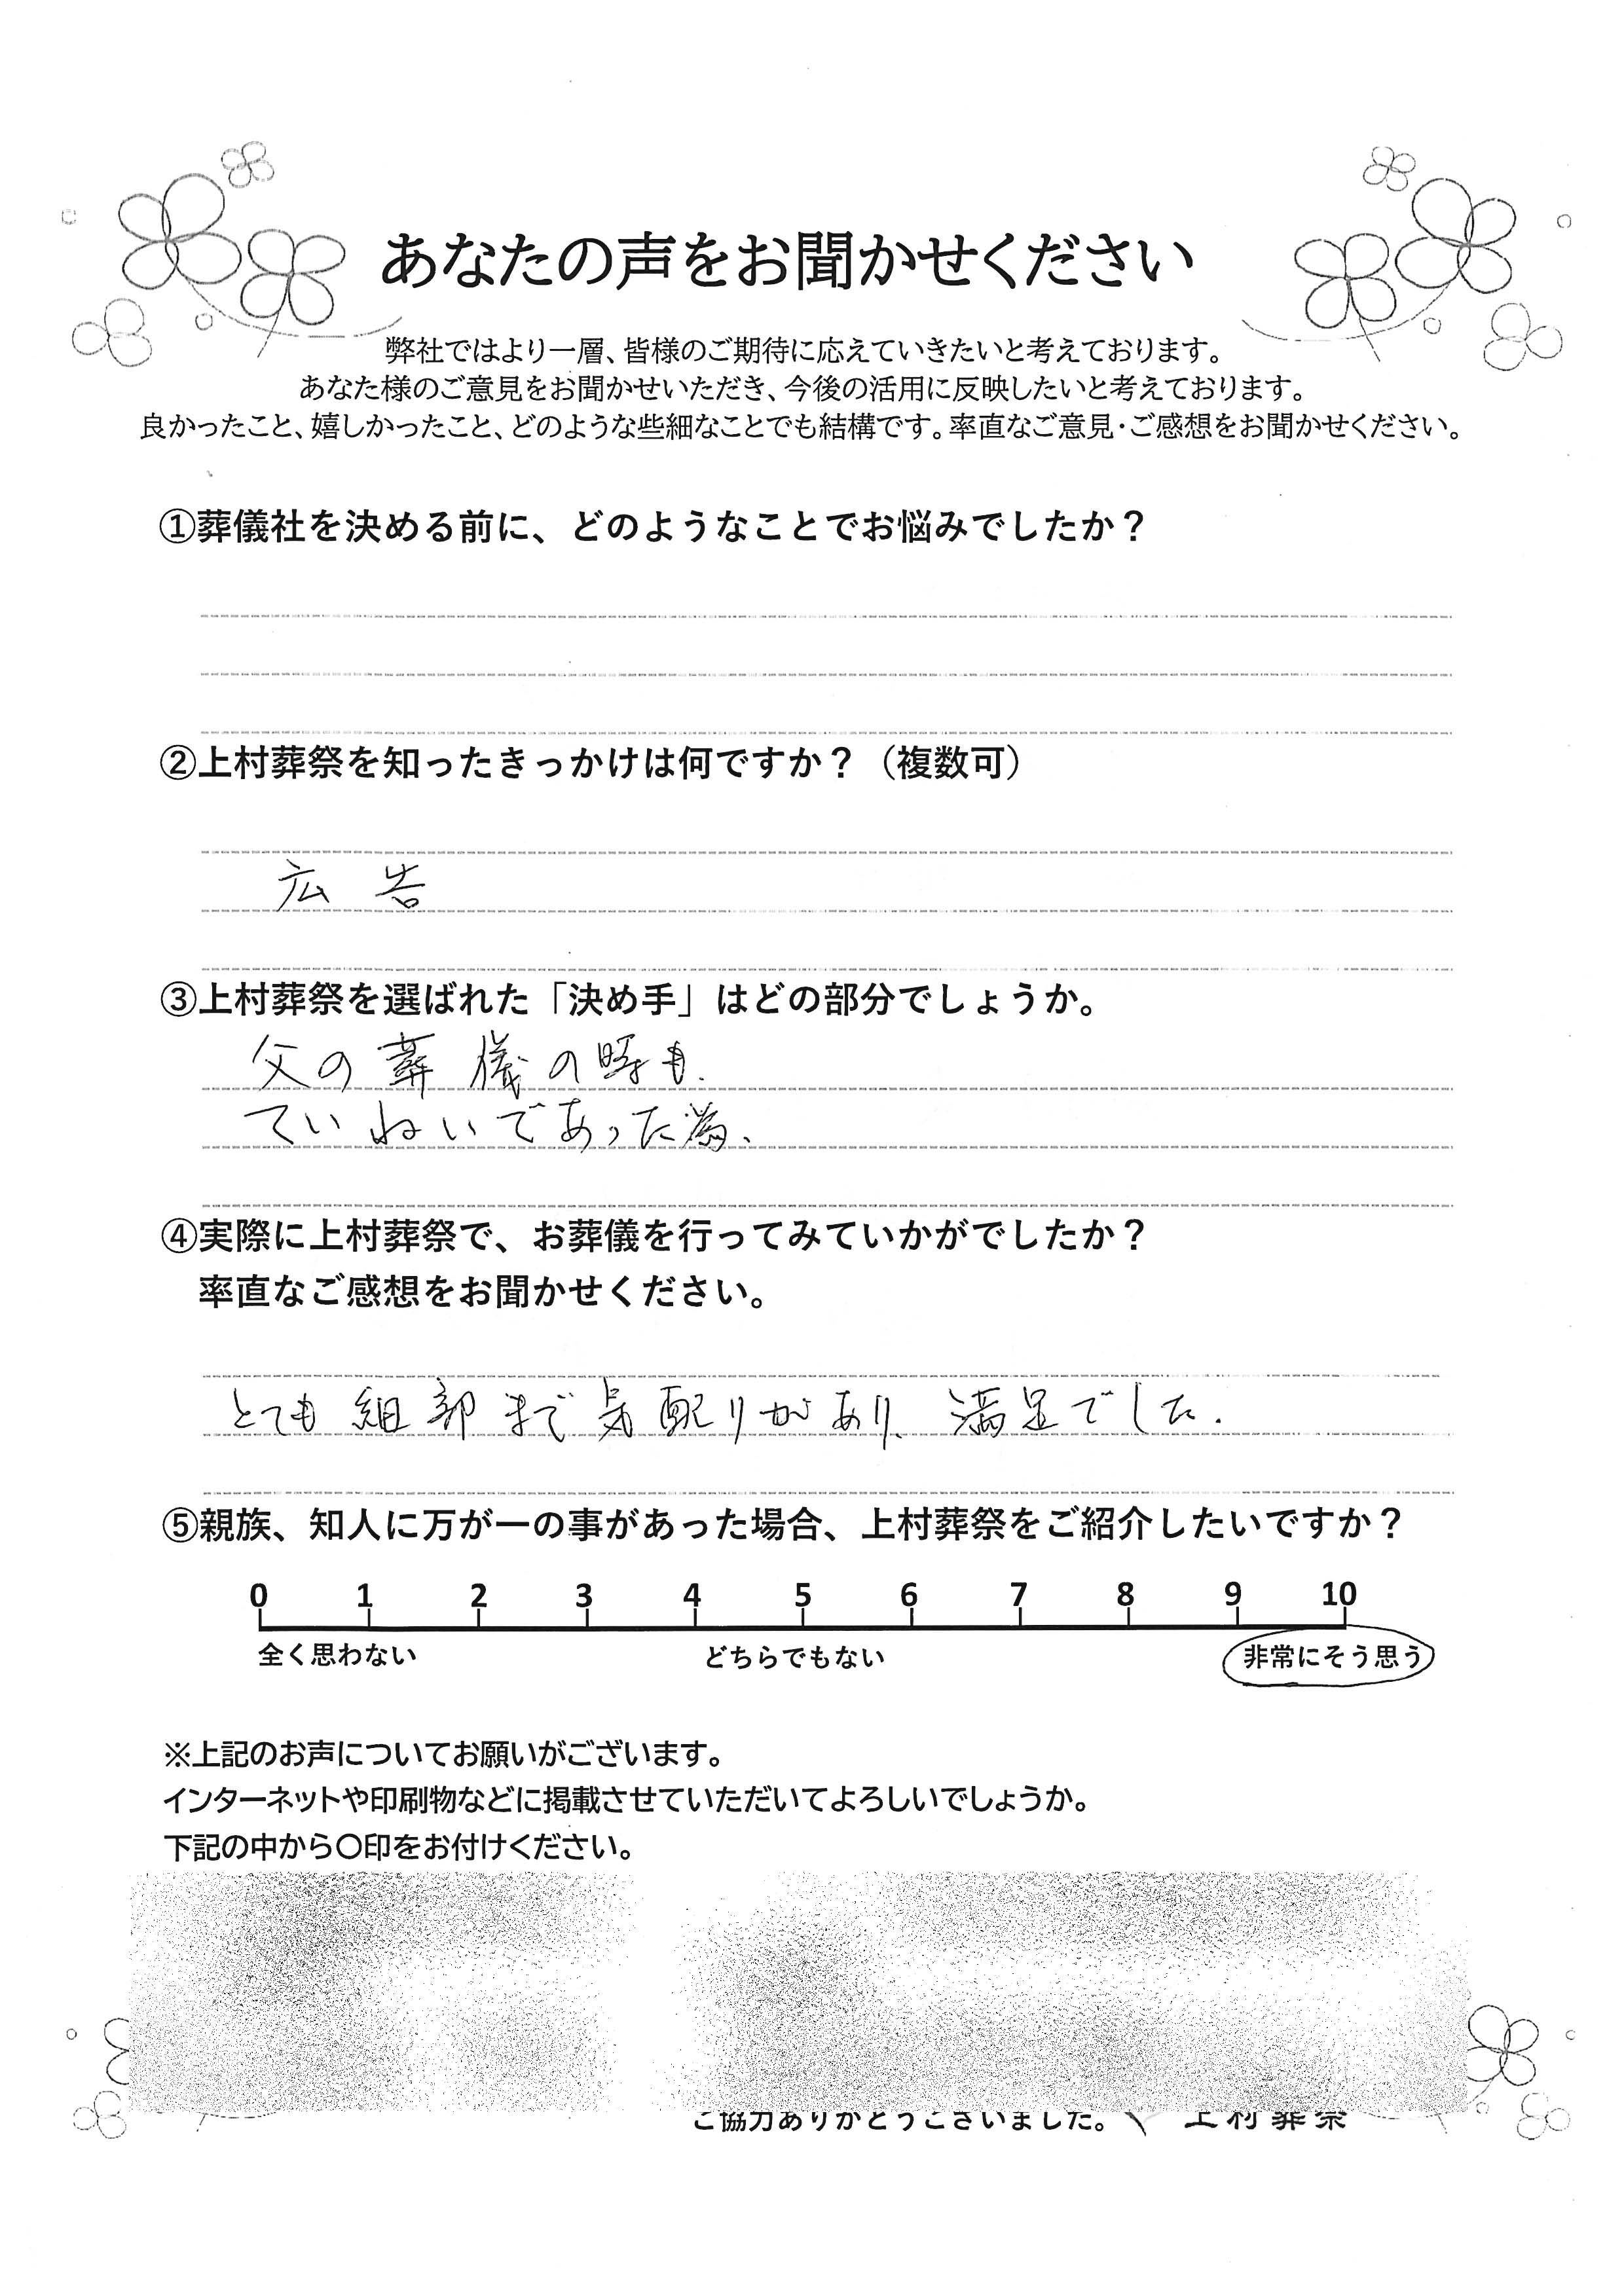 あなたの声をお聞かせください
弊社ではより一層、皆様のご期待に応えていきたいと考えております。
あなた様のご意見をお聞かせいただき、今後の活用に反映したいと考えております。
良かったこと、嬉しかったこと、どのような些細なことでも結構です。率直なご意見・ご感想をお聞かせください。
①葬儀社を決める前に、どのようなことでお悩みでしたか？
②上村葬祭を知ったきっかけは何ですか？（複数可）
広告
③上村葬祭を選ばれた「決め手」はどの部分でしょうか。
父の葬儀の時も、
ていねいであった為、
④実際に上村葬祭で、お葬儀を行ってみていかがでしたか？
率直なご感想をお聞かせください。
とても細部まで気配りがあり、満足でした。
⑤親族、知人に万が一の事があった場合、上村葬祭をご紹介したいですか？
0 1 2 3 4 5 6 7 8 9 10
全く思わない どちらでもない 非常にそう思う
※上記のお声についてお願いがございます。
インターネットや印刷物などに掲載させていただいてよろしいでしょうか。
下記の中から〇印をお付けください。
ご協力ありがとうございました。 上村葬祭